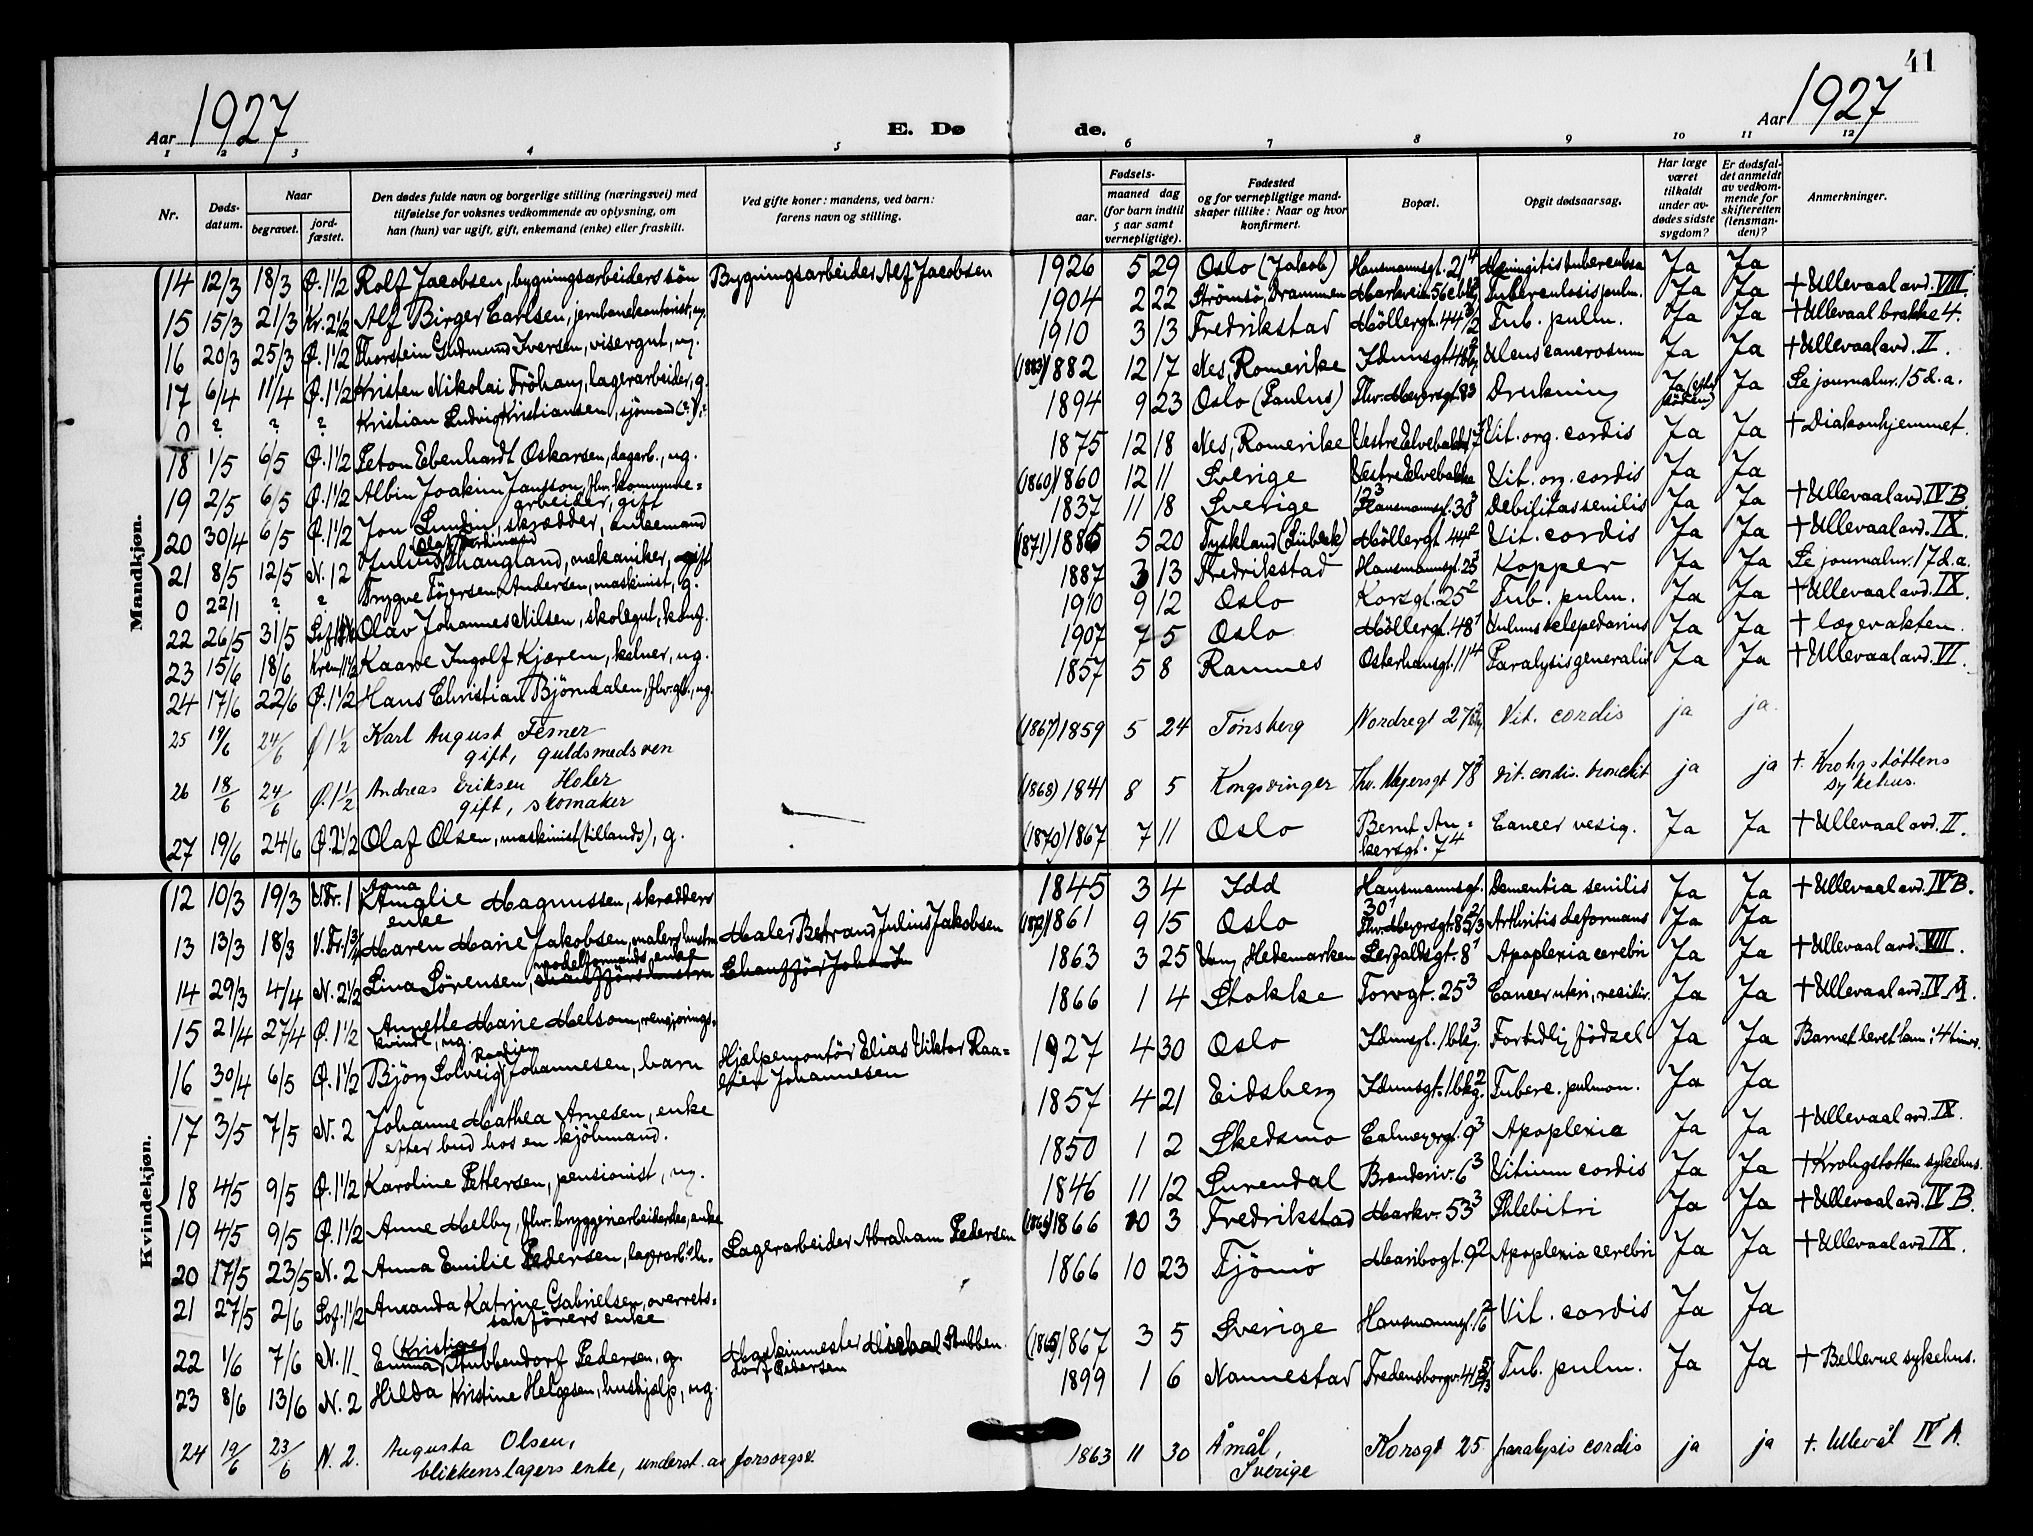 41
Aar 1927
E. Dø
de.
Aar 1927
1 2 3 4 5 6 7 8 9 10 11 12
Nr.
Døds-datum.
Naar
begravet.
jord-fæstet.
Den dødes fulde navn og borgerlige stilling (næringsvei) med
tilføielse for voksnes vedkommende av oplysning, om
han (hun) var ugift, gift, enkemand (enke) eller fraskilt.
Ved gifte koner: mandens, ved barn:
farens navn og stilling.
Fødsels-
aar. maaned dag
(for barn indtil
5 aar samt
vernepligtige).
Fødested
og for vernepligtige mand-
skaper tillike: Naar og hvor
konfirmert.
Bopæl.
Opgit dødsaarsag.
Har læge
været
tilkaldt
under av-
dødes sidste
sygdom?
Er dødsfal-
det anmeldt
av vedkom-
mende for
skifteretten
(lensman-
den)?
Anmerkninger.
Mandkjøn.
14 12/3 18/3 Ø. 1 1/2 Rolf Jacobsen, bygningsarbeiders søn Bygningsarbeider Alf Jacobsen 1926 5 29 Oslo (Jakob) Hausmannsgt. 21 4 Meningitis tuberculosa Ja Ja
15 15/3 21/3 Kr. 2 1/2 Alf Birger Carlsen, jernbanekontorist, ug. 1904 2 22 Strømsø, Drammen Markveien 56 Tuberculosis pulm. Ja Ja + Ullevaal avd. VIII.
16 20/3 25/3 Ø. 1 1/2 Thorstein Gudmund Iversen, visergut, ug. 1910 3 13 Fredrikstad Møllergt. 44 Tub. pulm. Ja Ja + Ullevaal brakke 4.
17 6/4 11/4 Ø. 1 1/2 Kristen Nikolai Frøhaug, lagerarbeider, g. (1883) 1882 12 17 Nes, Romerike Idunsgt. Ulcus cancrosum Ja Ja + Ullevaal avd. II.
0 ? ? ? Kristian Ludvig Kristiansen, sjömand 1894 9 23 Oslo (Paulus) Thv. Meyersgt. 8 3 Drukning Ja Ja Se journalnr. 15 d. a.
18 1/5 6/5 Ø. 1 1/2 Peton Ebenhardt Oskarsen, dagarb., ug. 1875 12 18 Nes, Romerike Vestre Elvebakke 17 Vit. org. cordis Ja Ja + Diakonhjemmet.
19 2/5 6/5 Ø. 1 1/2 Albin Joakim Jansson, fhv. kommune=
arbeider, gift (1860) 1860 12 11 Sverige Vestre Elvebakke Vit. org. cordis Ja Ja
20 30/4 6/5 Ø. 1 1/2 Jon Lundin, skrædder, enkemand 1837 11 18 Sverige Hausmannsgt. 38 Debilitas senilis Ja Ja + Ullevaal avd. IV B
21 8/5 12/5 N. 12 Julius Olaf Ferdinand Shaugland, mekaniker, gift (1871) 1886 5 20 Tyskland (Lübeck) Møllergt. 44 2 Vit. cordis Ja Ja + Ullevaal avd. IX.
0 22/1 ? ? Trygve Andersen, maskinist, g. 1887 3 13 Fredrikstad Hausmannsgt. 25 Kopper Ja Ja Se journalnr. 17 d. a.
22 26/5 31/5 Olav Johannes Nilsen, skolegut, konf. 1910 9 12 Oslo Korsgt. 25 2 Tub. pulm. Ja Ja + Ullevaal avd. IX.
23 15/6 18/6 Krem. 11 1/2 Kaare Ingolf Kjærem, kelner, ug. 1907 7 5 Oslo Møllergt. 48 1 Vulnus Ja Ja + lægevakten.
24 17/6 22/6 Ø. 1 1/2 Hans Christian Bjørndalen, ug. 1857 5 8 Ramnes Osterhausgt. 11 4 Paralysis generalis Ja Ja + Ullevaal avd. VI.
25 19/6 24/6 Ø 1 1/2 Karl August Ferner
gift, guldsmedsven (1867) 1859 5 24 Tønsberg Nordregt 27 Vit. cordis ja ja.
26 18/6 24/6 Ø. 1 1/2 Andreas Eriksen Holer
gift, skomaker (1868) 1841 8 5 Kongsvinger Thv. Meyersgt 78 vit. cordis. bronchit ja ja +. Krohgstøttens
sykehus.
27 19/6 24/6 Ø. 2 1/2 Olaf Olsen, maskinist (tillands), g. (1870) 1867 7 11 Oslo Bernt An=
kersgt. 7 4 Cancer vesig. Ja Ja + Ullevaal avd. II.
Kvindekjøn.
12 10/3 19/3 V. Fr. 1 Anna Amalie Magnussen, skrædders
enke 1845 3 4 Idd Hausmannsgt.
30 1 Dementia senilis Ja Ja + Ullevaal avd. IV B.
13 13/3 18/3 V. Fr. Maren Marie Jakobsen, malers hustru Maler Betrand Julius Jakobsen 1861 9 15 Oslo Thv. Meyersgt. 85 Arthritis deformans Ja Ja
14 29/3 4/4 N. 2 1/2 Lina Sørensen, enke Chauffør Johan 1863 3 25 Vang, Hedemarken Seyfaldtsgt. 8 1 Apoplexia cerebri Ja Ja + Ullevaal avd. VIII.
15 21/4 27/4 Ø. 1 1/2 Annette Marie Melsom, rengjørings=
kvinde, ug. 1866 1 4 Stokke Torvgt. 25 3 Cancer uteri, recidiv. Ja Ja + Ullevaal avd. IV A.
16 30/4 6/5 Ø. 1 1/2 Bjørg Solveig Johannesen, barn Hjælpemontør Elias Viktor Raa=
Johannesen 1927 4 30 Oslo Idunsgt. 1 Fortidlig fødsel Ja Ja Barnet levet 4 timer.
17 3/5 7/5 N. 2 Johanne Mathea Arnesen, enke
efter bud hos en kjøbmand. 1857 4 21 Eidsberg Idunsgt. 1 Tuberc. pulmon. Ja Ja
18 4/5 9/5 Ø. 1 1/2 Karoline Pettersen, pensionist, ug. 1850 1 2 Skedsmo Calmeyergt. 9 3 Apoplexia Ja Ja + Ullevaal avd. IX.
19 4/5 9/5 Ø. 1 1/2 Anne Melby, fhv. bryggeriarbeiderske, enke 1846 11 12 Surendal Brenneriv. 6 3 Vitium cordis Ja Ja + Krohgstøtten sykehus.
20 17/5 23/5 N. 2 Anna Emilie Pedersen, lagerarb.'s h. Lagerarbeider Abraham Pedersen (1866) 1866 10 3 Fredrikstad Markv. 53 3 Phlebitri Ja Ja + Ullevaal avd. IV B.
21 27/5 2/6 Sof. 1 1/2 Amanda Katrine Gabrielsen, overrets=
sakførers enke 1866 10 23 Tjømø Maribogt. 9 2 Apoplexia cerebri Ja Ja + Ullevaal avd. IX.
22 1/6 7/6 N. 11 Emma Kristine Stubbendorf Pedersen, g. Maskinmester Michael Stubben.
dorf Pedersen (1865) 1867 3 5 Sverige Hausmannsgt. 16 Vit. cordis Ja Ja
23 8/6 13/6 N. 2 Hilda Kristine Helgesen, hushjelp, ug. 1899 1 6 Nannestad Fredensborgv. 41 Tub. pulm. Ja Ja + Bellevue sykehus.
24 19/6 23/6 N. 2. Augusta Olsen,
blikkenslagers enke, underst. av forsorgsv. 1863 11 30 Åmål,
Sverige Korsgt 25 paralysis cordis ja ja +. Ullevål IV A.